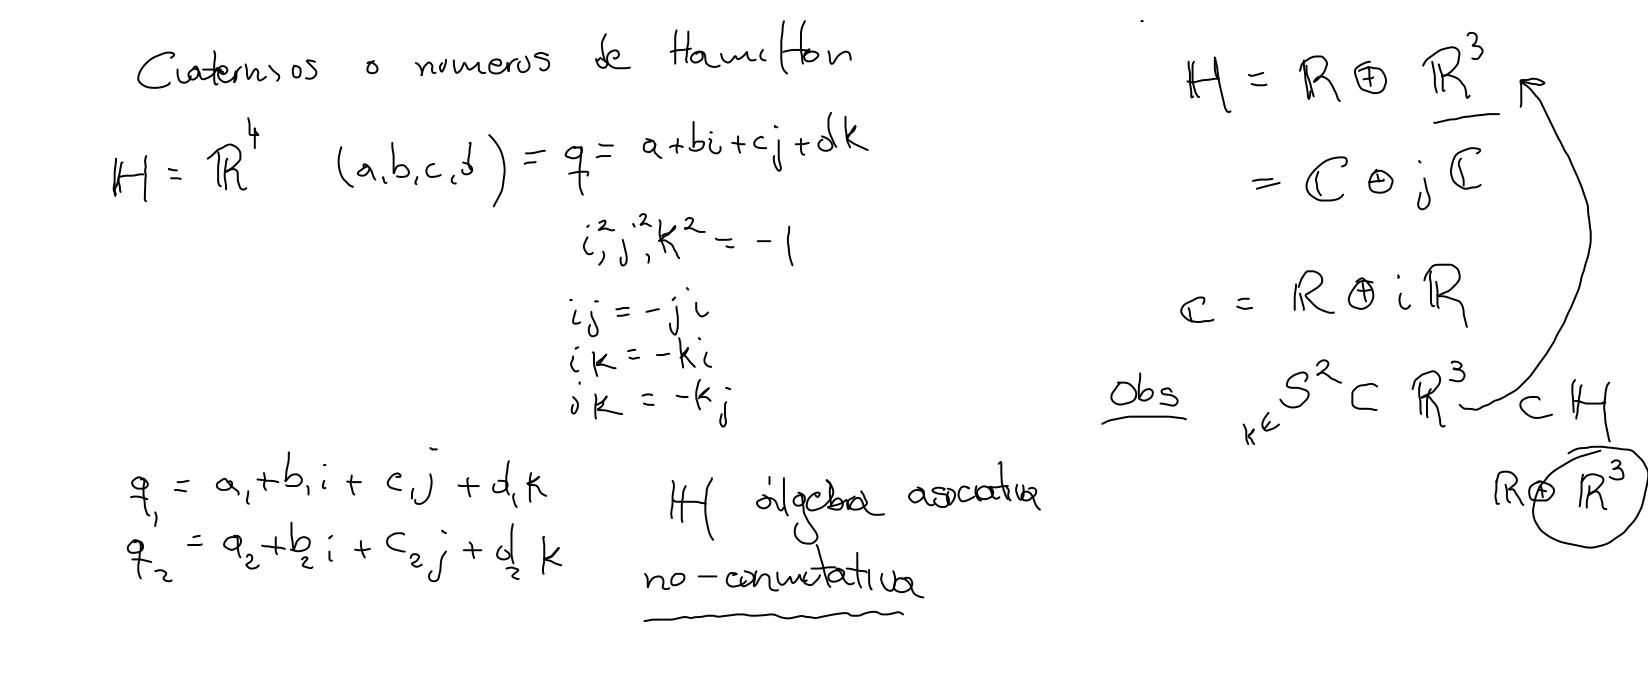 Cuaternios o numeros de Hamilton
ℍ = ℝ⁴ (a,b,c,d) = q = a+bi+cj+dk
i², j², k² = -1
ij = -ji
ik = -ki
jk = -kj
q₁ = a₁+b₁i + c₁j + d₁k
q₂ = a₂+b₂i + c₂j + d₂k
ℍ álgebra asociativa
no-conmutativa
ℍ = ℝ ⊕ ℝ³
= ℂ ⊕ jℂ
ℂ = ℝ ⊕ iℝ
Obs k ∈ S² ⊂ ℝ³ ⊂ ℍ
ℝ ⊕ ℝ³